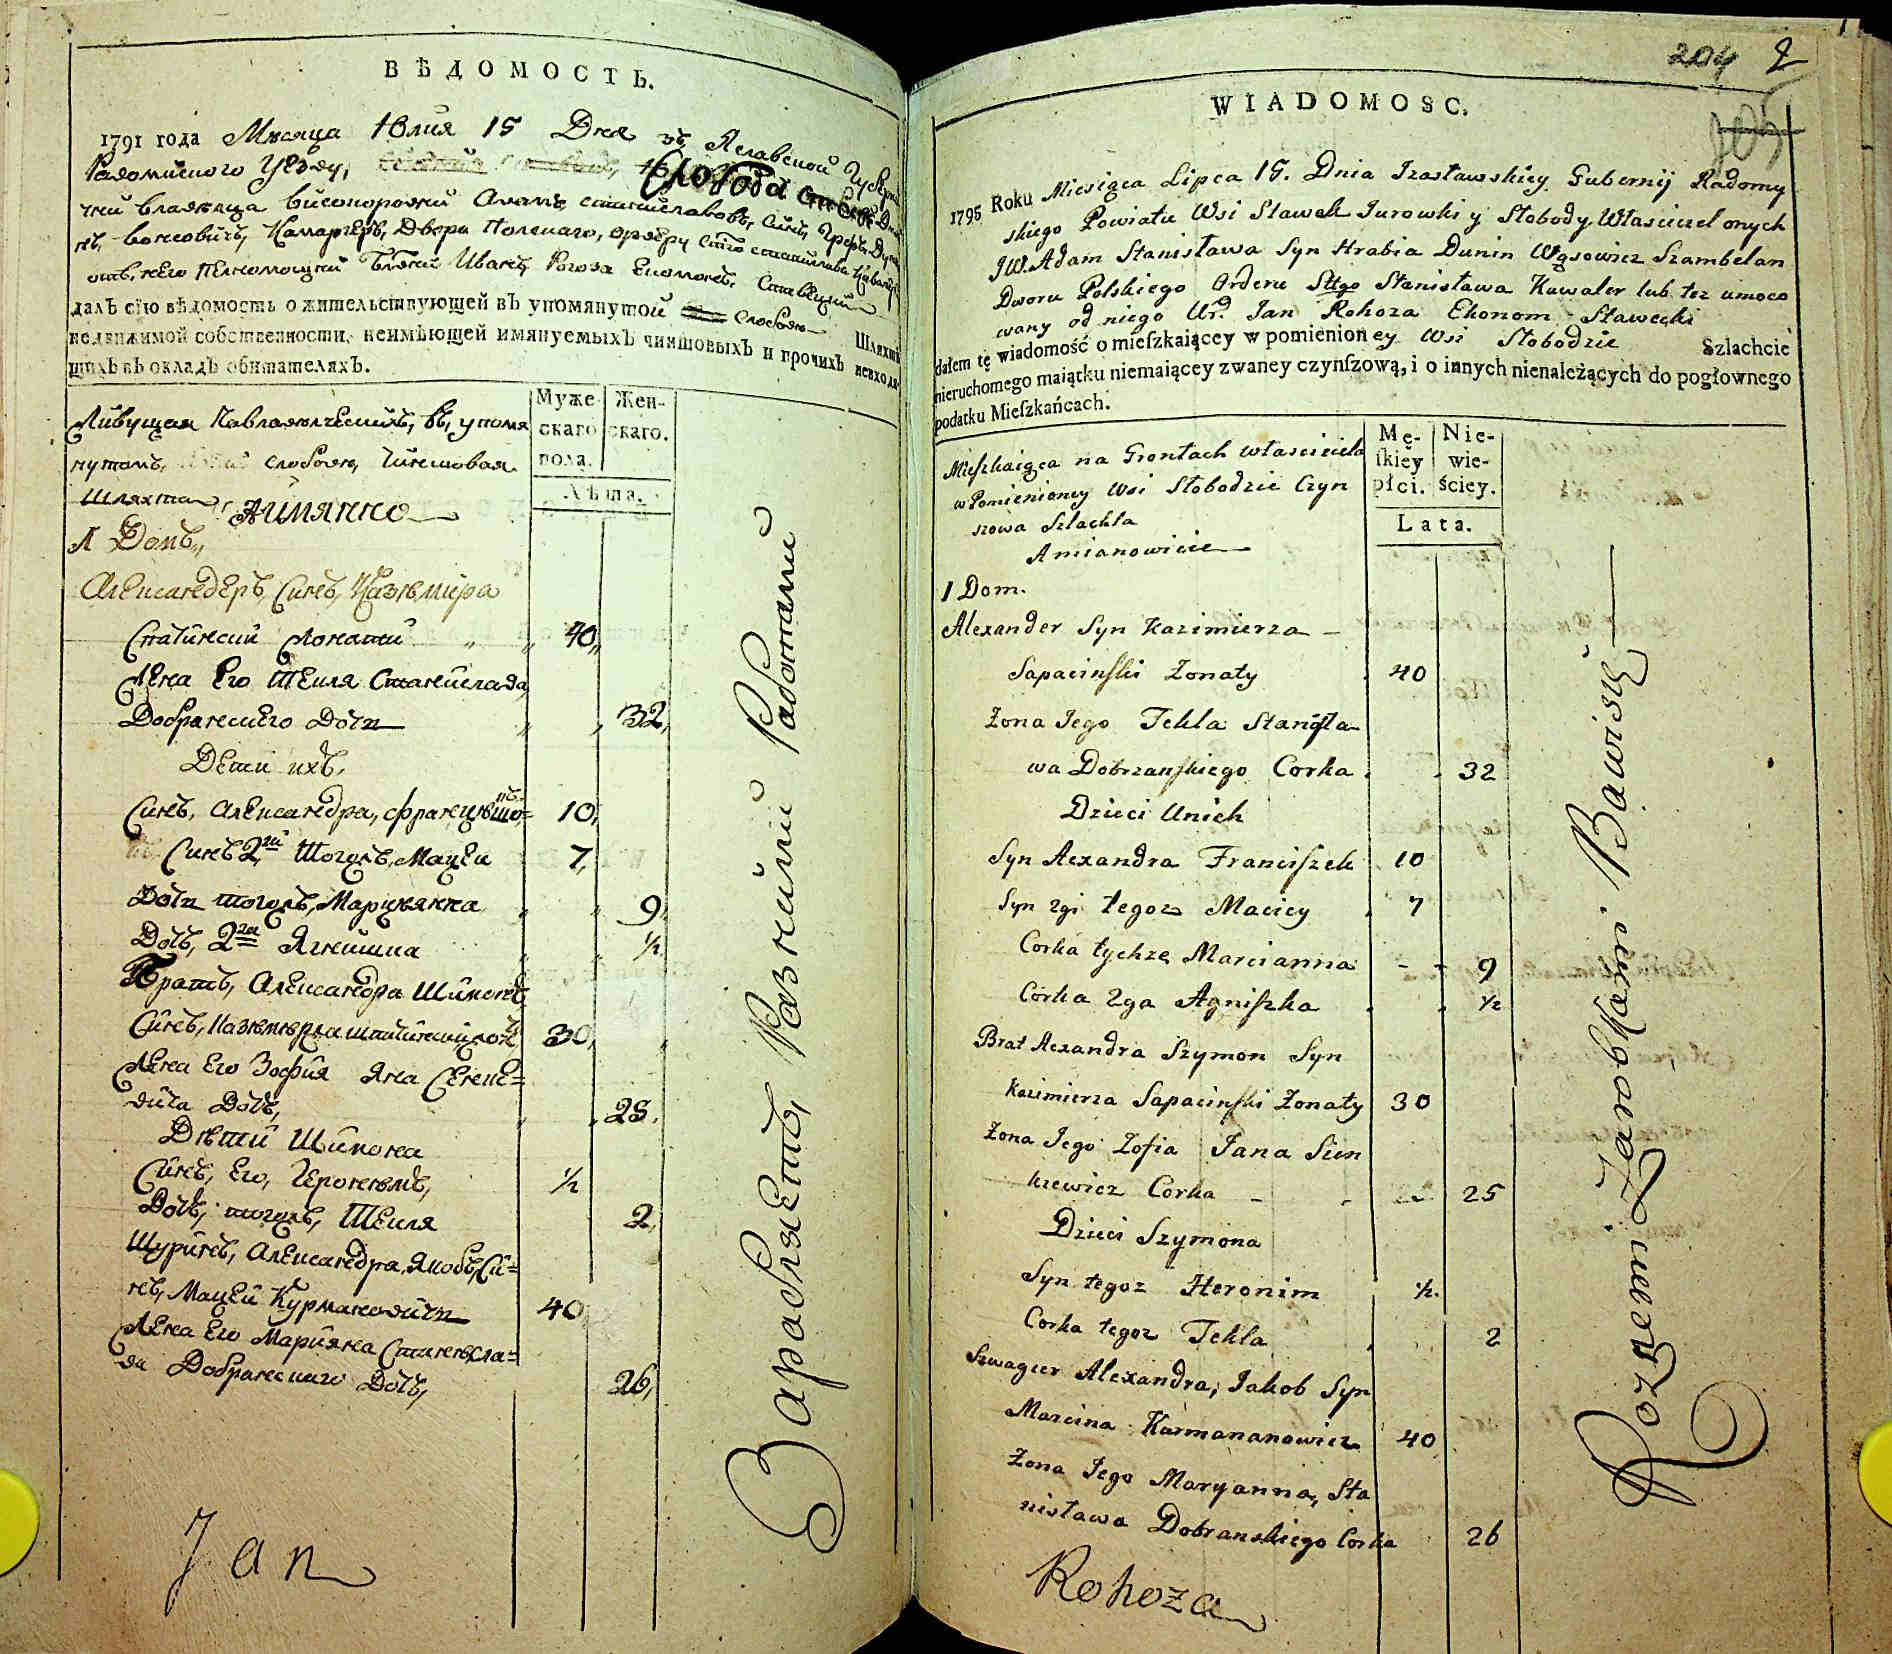 ВѢДОМОСТЬ.
1791 года Мѣсяца Юлия 15 Дня въ Изславской Губерніи
Радомиского Уезду, Слобода
владельца високородній Адамъ Станиславовъ, Синъ, Графъ Дунинъ
Вонсовичъ, Камаргеръ, Двора Полскаго, Ордеру Стго Станислава Кавалеръ
отъ, него Иванъ Рогоза Економъ, Ставецкий
далъ сію вѣдомость о жительствующей въ упомянутой слободе Шляхтѣ
недвижимой собственности, неимѣющей имянуемыхъ чиншовыхъ и прочихъ невходя-
щихъ въ окладъ обитателяхъ.
Муже-
скаго
пола.
Жен-
скаго.
Лѣта.
Живущая въ, упомя
нутомъ, слободе, Чиншовая
Шляхта,
1 Домъ,,
Александеръ, Синъ, Казѣмира
Жонатий 40,,
Жена Его Текля Станислава
Добранского Дочь 32,
Дети ихъ,
Синъ, Александра, Францѣшокъ 10,
Синъ 2й Тогожъ, Мацей 7,
Дочь тогожъ, Марцѣянна 9,
Дочь, 2я Агнишка ½
Братъ, Александра Шимонъ
Синъ, Казѣмѣра 30,
Жена Его Зофия Яна Сенке=
вича Дочь, 25,
Дѣтй Шимона
Синъ, Его, Героннмъ, ½
Дочь, тогожъ, Текля 2,
Шуринъ, Александра, Якобъ, Си=
нъ, Мацей Курмановичъ 40
Жена Его Марияна Станѣсла=
ва Добранского Дочь, 26,
Зарабляетъ, Разними Работами
Jan
204 2
WIADOMOSC.
1795 Roku Miesiąca Lipca 15. Dnia Izasławskiey Gubernij Radomy
skiego Powiatu Wsi Stawek Jurowki y Słobody Właściciel onych
JW. Adam Stanisława Syn Hrabia Dunin Wąsowicz Szambelan
Dworu Polskiego Orderu Stgo Stanisława Kawaler lub tez umoco
wany od niego Ur. Jan Rohoza Ekonom Stawecki
dałem tę wiadomość o mieſzkaiącey w pomienioney Wsi Słobodzie Szlachcie
nieruchomego maiątku niemaiącey zwaney czynſzową, i o innych nienależących do pogłownego
podatku Mieſzkańcach.
Mę-
ſkiey
płci.
Nie-
wie-
ściey.
Lata.
Mieſzkaiąca na Grontach właściciela
w Pomienioney Wsi Słobodzie Czyn
szowa Szlachta
Amianowicie
1 Dom.
Alexander Syn Kazimierza
Sapacinſki Żonaty 40
Żona Jego Tekla Staniſła-
wa Dobrzanſkiego Corka 32
Dzieci Unich
Syn Aexandra Franciſzek 10
Syn 2gi tegoz Maciey 7
Corka tychze Marcianna 9
Corka 2ga Agniſzka ½
Brat Aexandra Szymon Syn
Kazimierza Sapacinſki Żonaty 30
Żona Jego Zofia Jana Sien
kiewicz Corka 25
Dzieci Szymona
Syn tegoz Heronim ½.
Corka tegoz Tekla 2
Szwagier Alexandra, Jakob Syn
Marcina Karmananowicz 40
Żona Jego Maryanna, Sta
nisława Dobranskiego Corka 26
Roznemi Zarobkami Bawisię
Rohoza